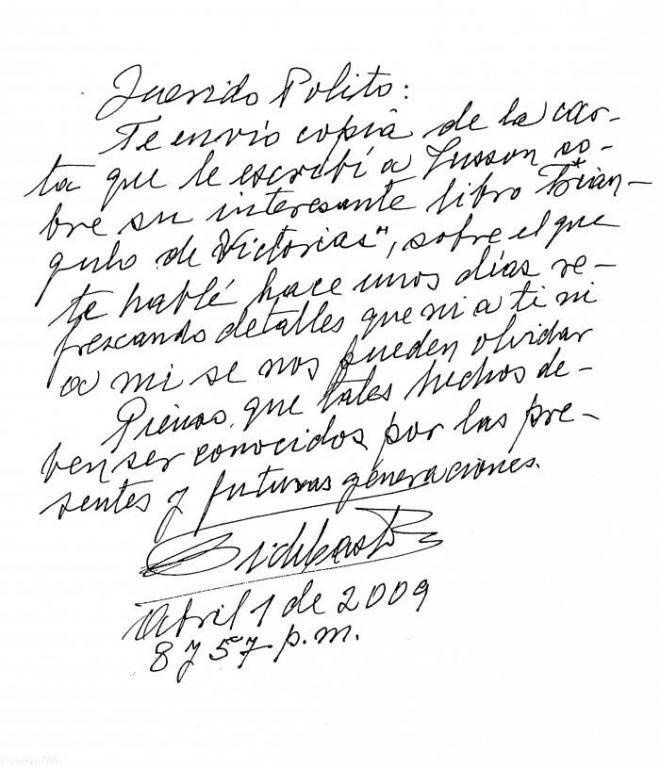 Querido Polito:
Te envío copia de la car-
ta que le escribí a Lusson so-
bre su interesante libro "Trian-
gulo de Victorias", sobre el que
te hablé hace unos días re-
frescando detalles que ni a ti ni
a mi se nos pueden olvidar
Pienso que tales hechos de-
ben ser conocidos por las pre-
sentes y futuras generaciones.
Fidel Castro R
Abril 1 de 2009
8 y 57 p.m.